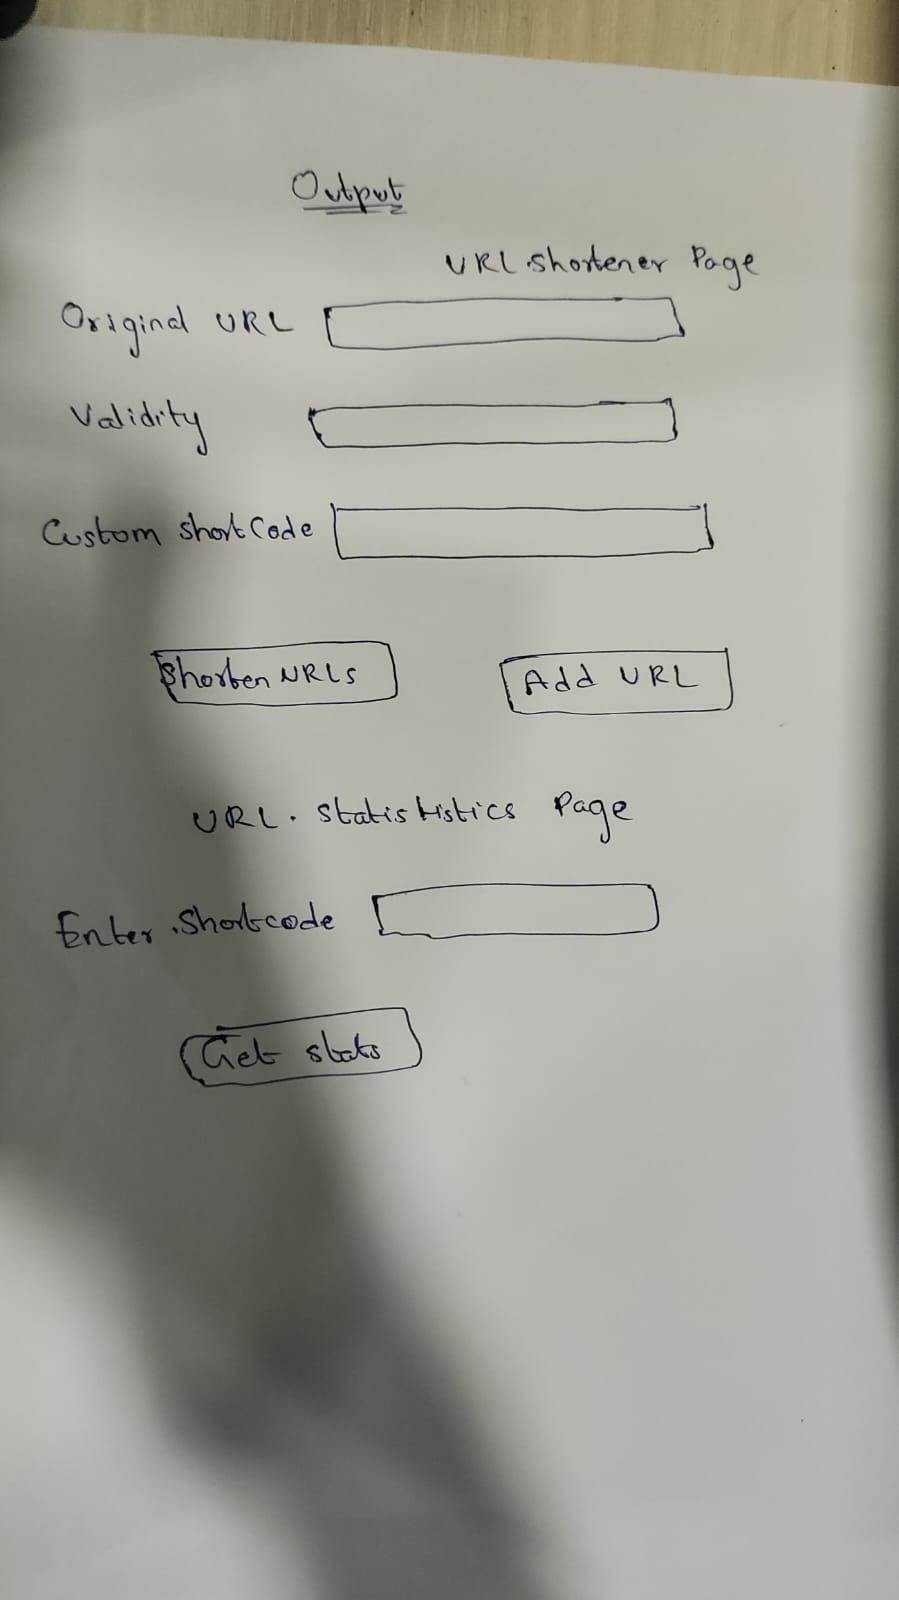 Output
URL Shortener Page
Original URL
Validity
Custom ShortCode
Shorten URLs
Add URL
URL. Statististics Page
Enter Shortcode
Get stats